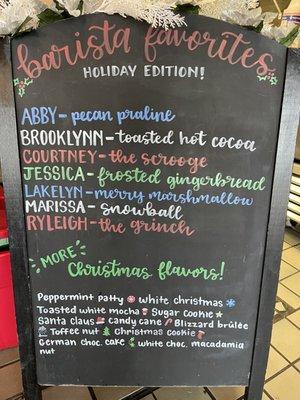 barista favorites
HOLIDAY EDITION!
ABBY- pecan praline
BROOKLYNN- toasted hot cocoa
COURTNEY- the scrooge
JESSICA- frosted gingerbread
LAKELYN- merry marshmallow
MARISSA- snowball
RYLEIGH- the grinch
MORE
Christmas flavors!
Peppermint patty white christmas
Toasted white mocha Sugar cookie
Santa claus candy cane Blizzard brûlee
Toffee nut Christmas cookie
German choc. cake white choc. macadamia
nut